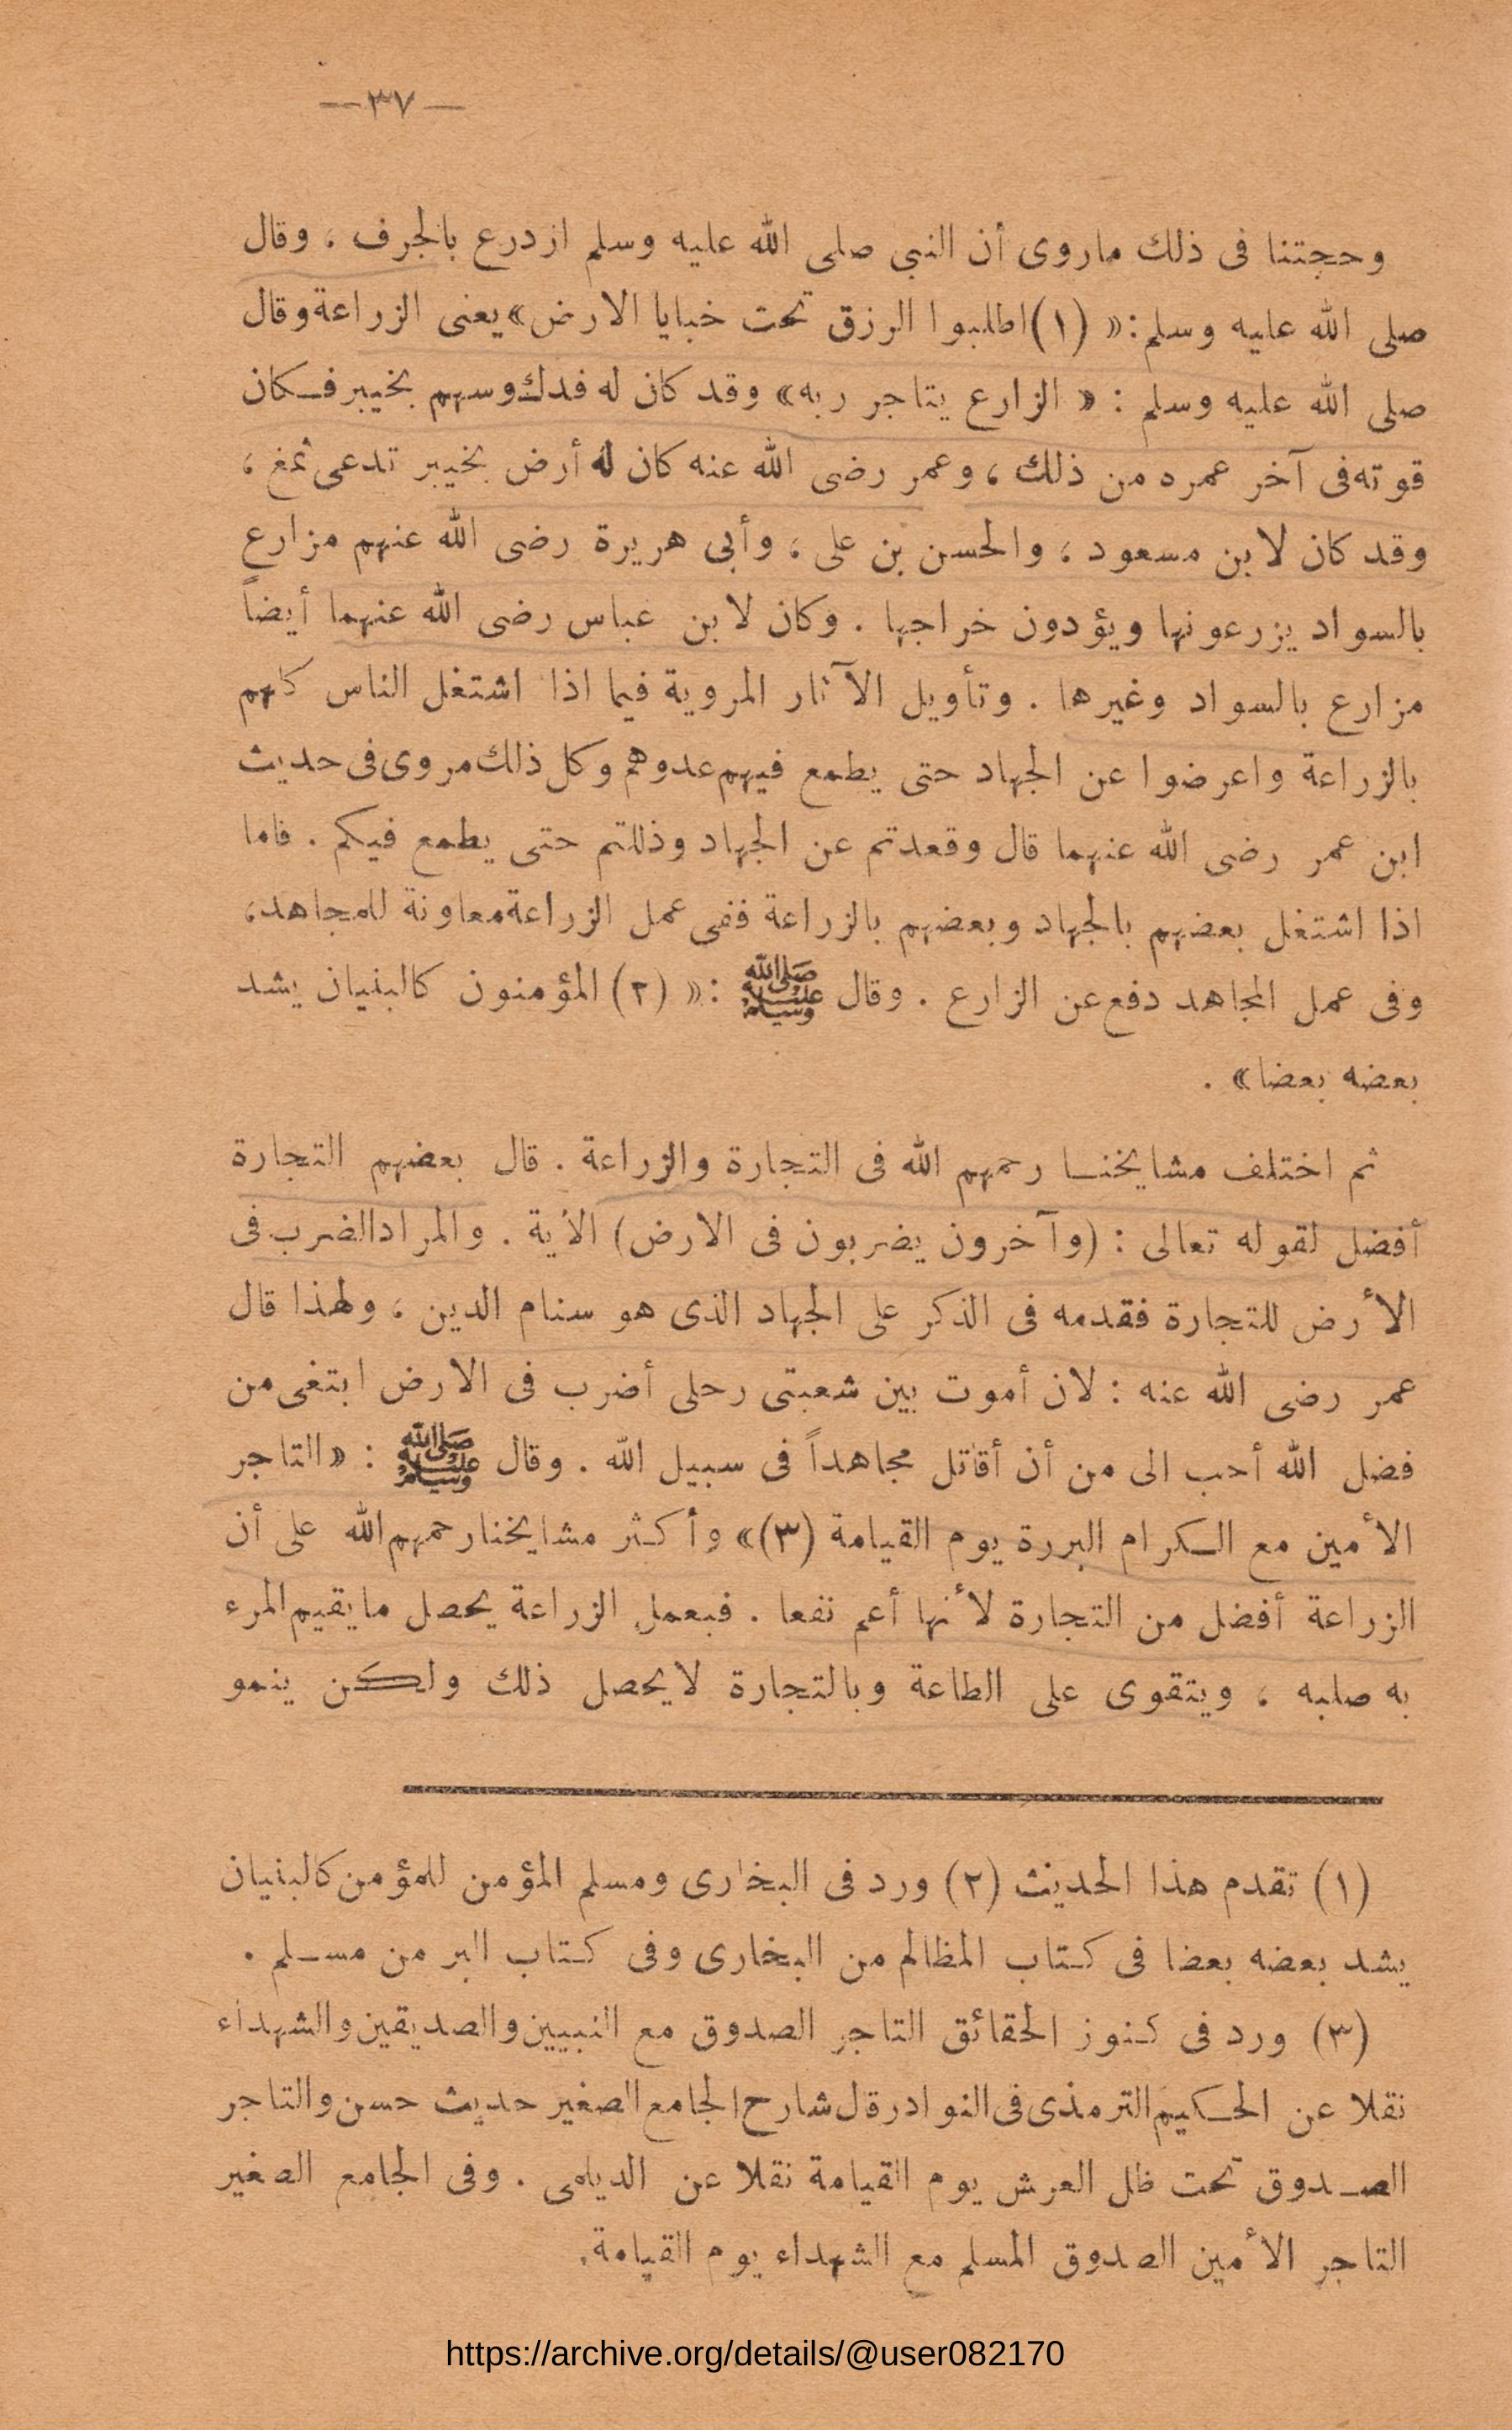 —٣٧—
وحجتنا فى ذلك ماروى أن النبى صلى الله عليه وسلم ازدرع بالجرف ، وقال
صلى الله عليه وسلم : « (١) اطلبوا الرزق تحت خبايا الارض » يعنى الزراعة وقال
صلى الله عليه وسلم : « الزارع يتاجر ربه » وقد كان له فدك وسهم بخيبر فكان
قوته فى آخر عمره من ذلك ، وعمر رضى الله عنه كان له أرض بخيبر تدعى ثمغ ،
وقد كان لابن مسعود ، والحسن بن على ، وأبى هريرة رضى الله عنهم مزارع
بالسواد يزرعونها ويؤدون خراجها . وكان لابن عباس رضى الله عنهما أيضاً
مزارع بالسواد وغيرها . وتأويل الآثار المروية فيما اذا اشتغل الناس كلهم
بالزراعة واعرضوا عن الجهاد حتى يطمع فيهم عدوهم وكل ذلك مروى فى حديث
ابن عمر رضى الله عنهما قال وقعدتم عن الجهاد وذللتم حتى يطمع فيكم . فاما
اذا اشتغل بعضهم بالجهاد وبعضهم بالزراعة ففى عمل الزراعة معاونة للمجاهد ،
وفى عمل المجاهد دفع عن الزارع . وقال ﷺ : « (٢) المؤمنون كالبنيان يشد
بعضه بعضا » .
ثم اختلف مشايخنا رحمهم الله فى التجارة والزراعة . قال بعضهم التجارة
أفضل لقوله تعالى : (وآخرون يضربون فى الارض) الأية . والمراد الضرب فى
الأرض للتجارة فقدمه فى الذكر على الجهاد الذى هو سنام الدين ، ولهذا قال
عمر رضى الله عنه : لان أموت بين شعبتى رحلى أضرب فى الارض ابتغى من
فضل الله أحب الى من أن أقاتل مجاهداً فى سبيل الله . وقال ﷺ : « التاجر
الأمين مع الكرام البررة يوم القيامة (٣) » وأكثر مشايخنا رحمهم الله على أن
الزراعة أفضل من التجارة لأنها أعم نفعا . فبعمل الزراعة يحصل ما يقيم المرء
به صلبه ، ويتقوى على الطاعة وبالتجارة لا يحصل ذلك ولكن ينمو
(١) تقدم هذا الحديث (٢) ورد فى البخارى ومسلم المؤمن للمؤمن كالبنيان
يشد بعضه بعضا فى كتاب المظالم من البخارى وفى كتاب البر من مسلم .
(٣) ورد فى كنوز الحقائق التاجر الصدوق مع النبيين والصديقين والشهداء
نقلا عن الحكيم الترمذى فى النوادر قال شارح الجامع الصغير حديث حسن والتاجر
الصدوق تحت ظل العرش يوم القيامة نقلا عن الديلمى . وفى الجامع الصغير
التاجر الأمين الصدوق المسلم مع الشهداء يوم القيامة.
https://archive.org/details/@user082170